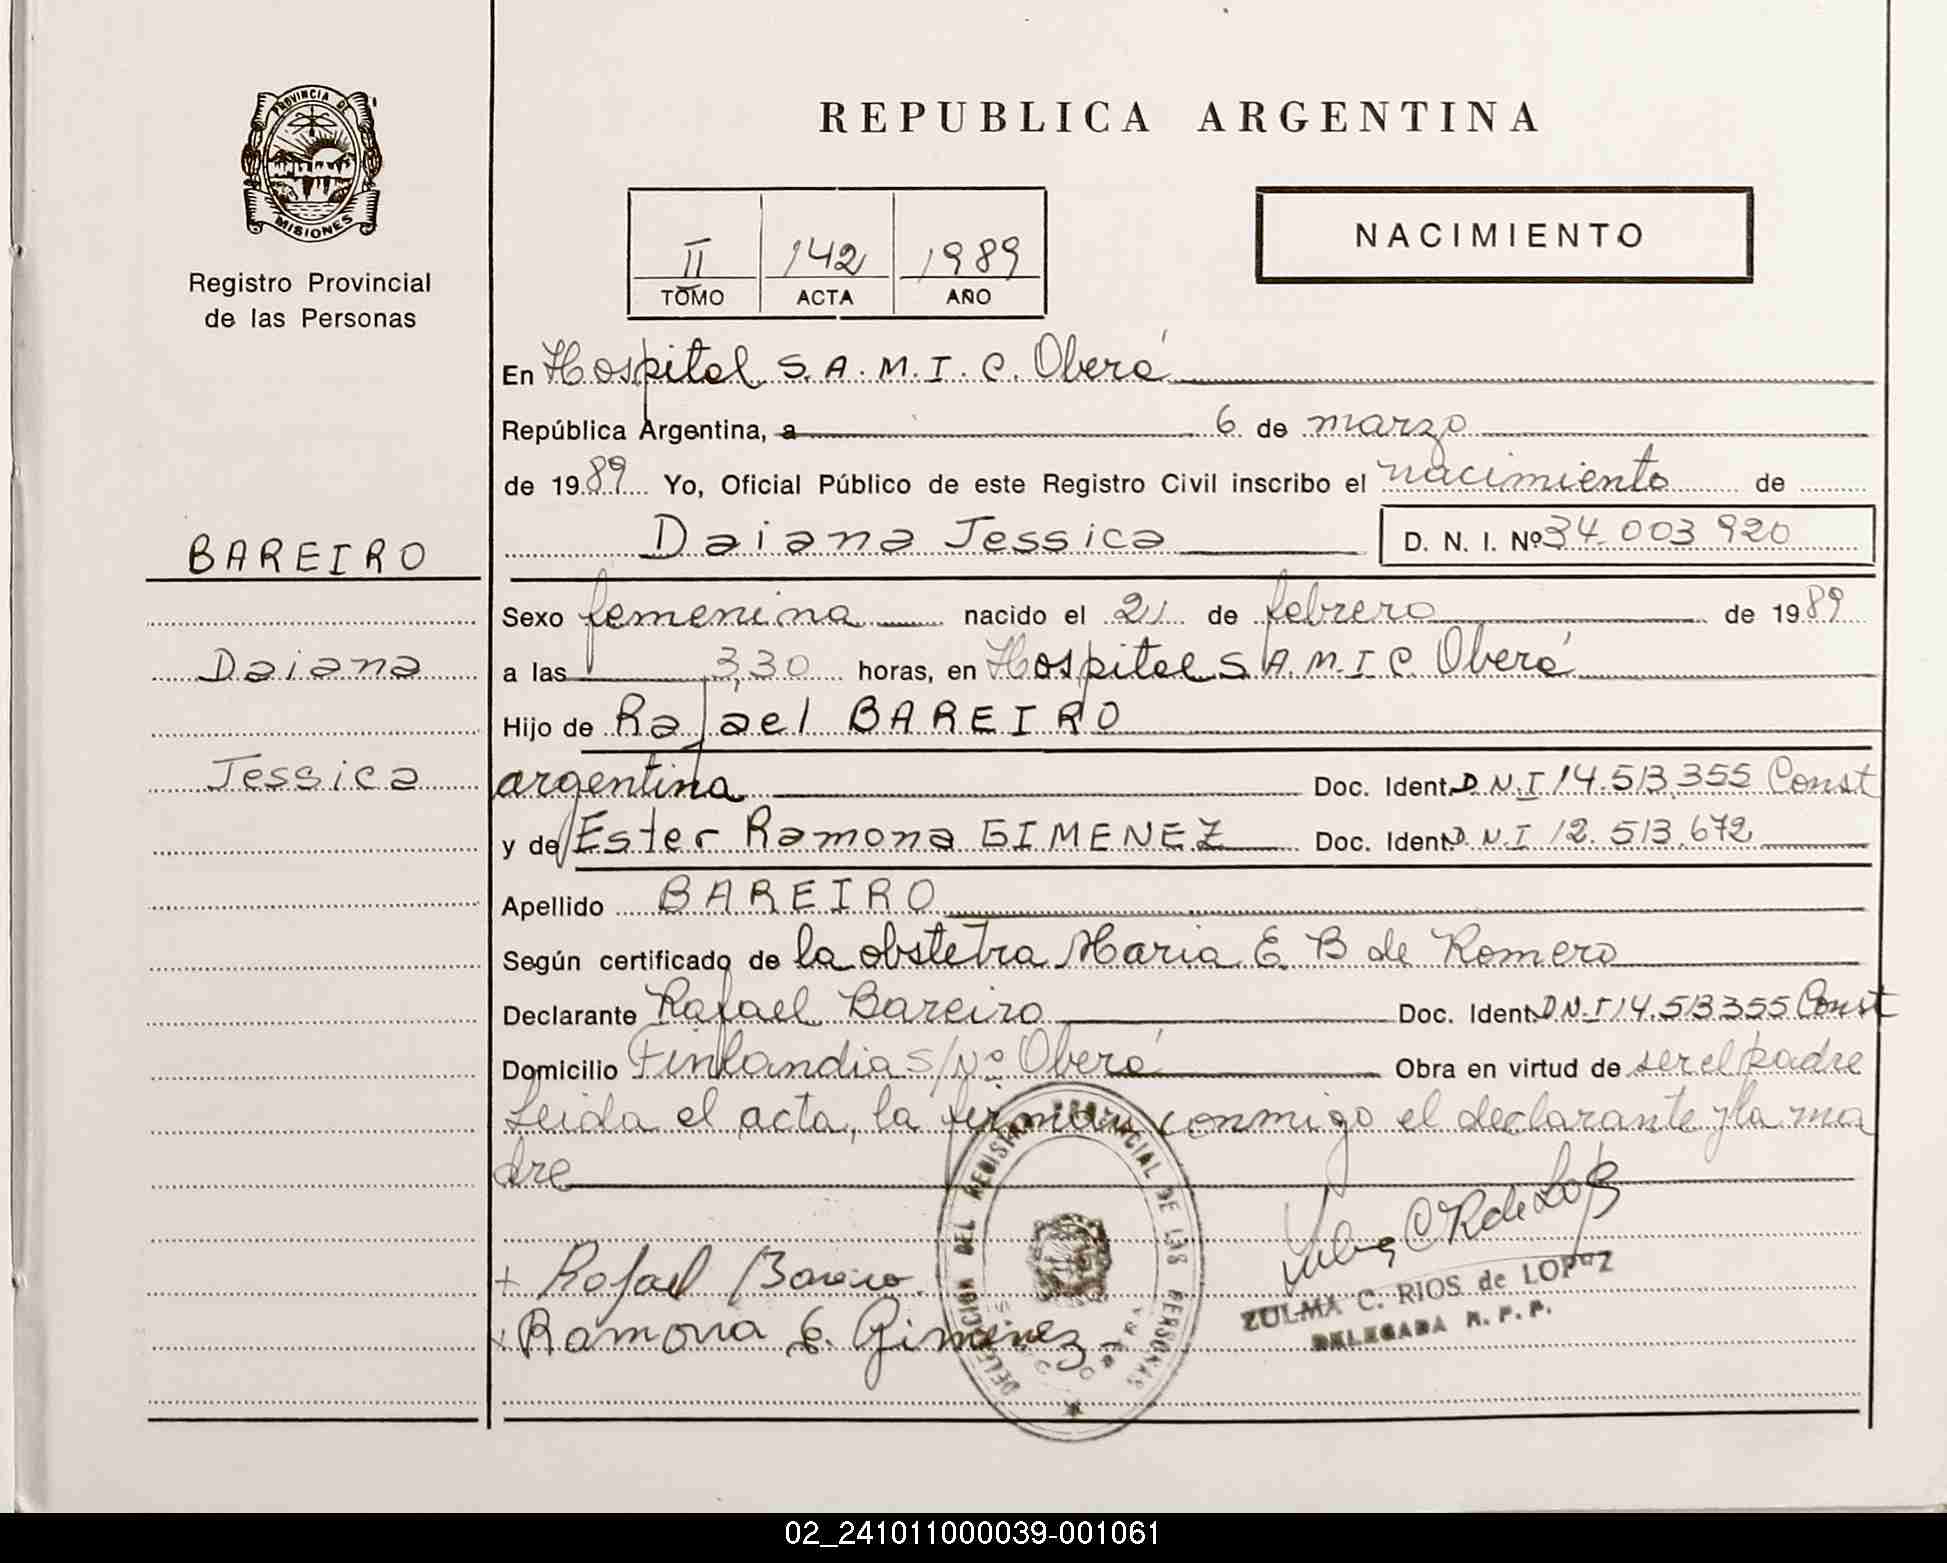 PROVINCIA DE
MISIONES
Registro Provincial
de las Personas
REPUBLICA ARGENTINA
NACIMIENTO
II 142 1989
TOMO ACTA AÑO
En Hospital S.A.M.I.C. Oberá
República Argentina, a 6 de marzo
de 1989 Yo, Oficial Público de este Registro Civil inscribo el nacimiento de
Daiana Jessica D. N. I. Nº 34.003920
BAREIRO
Sexo femenina nacido el 21 de febrero de 1989
Daiana
a las 3,30 horas, en Hospital S.A.M.I.C. Oberá
Hijo de Rafael BAREIRO
Jessica
argentina Doc. Ident. D.N.I 14.513.355 Const
y de Ester Ramona GIMENEZ Doc. Ident. D.N.I 12.513.672
Apellido BAREIRO
Según certificado de la obstetra Maria E. B de Romero
Declarante Rafael Bareiro Doc. Ident. D.N.I 14.513355 Const
Domicilio Finlandia S/Nº Oberá Obra en virtud de ser el padre
Leida el acta, la firman conmigo el declarante y la ma
dre
+ Rafael Bareiro
+ Ramona E. Gimenez
DELEGACION DEL REGISTRO PROVINCIAL DE LAS PERSONAS
ZULMA C. RIOS de LOPEZ
DELEGADA R. P. P.
02_241011000039-001061